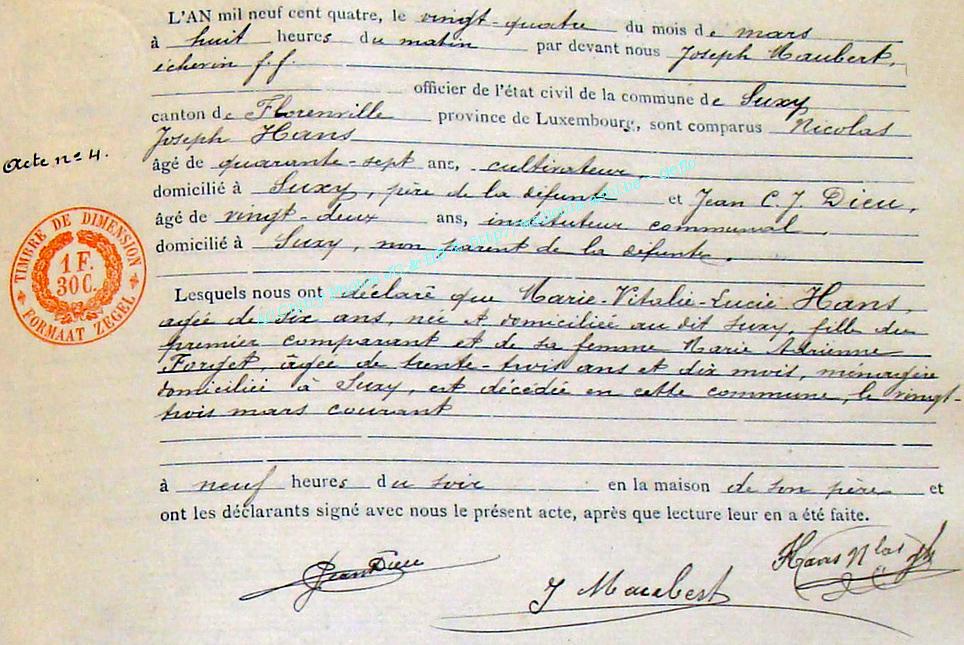 L'AN mil neuf cent quatre, le vingt-quatre du mois de mars
à huit heures du matin par devant nous Joseph Maubert,
échevin f.f.
officier de l'état civil de la commune de Suxy
canton de Florenville province de Luxembourg, sont comparus Nicolas
Joseph Hans
Acte n° 4.
âgé de quarante-sept ans, cultivateur,
domicilié à Suxy, père de la défunte et Jean C. J. Dieu,
âgé de vingt-deux ans, instituteur communal,
domicilié à Suxy, non parent de la défunte.
TIMBRE DE DIMENSION
1 F.
30 C.
FORMAAT ZEGEL
Lesquels nous ont déclaré que Marie-Vitalie-Lucie Hans,
agée de six ans, née et domiciliée au dit Suxy, fille du
premier comparant et de sa femme Marie Adrienne
Forget, âgée de trente-trois ans et dix mois, ménagère
domiciliée à Suxy, est décédée en cette commune, le vingt-
trois mars courant
à neuf heures du soir en la maison de son père et
ont les déclarants signé avec nous le présent acte, après que lecture leur en a été faite.
Jean Dieu
J Maubert
Hans Nlas Jh